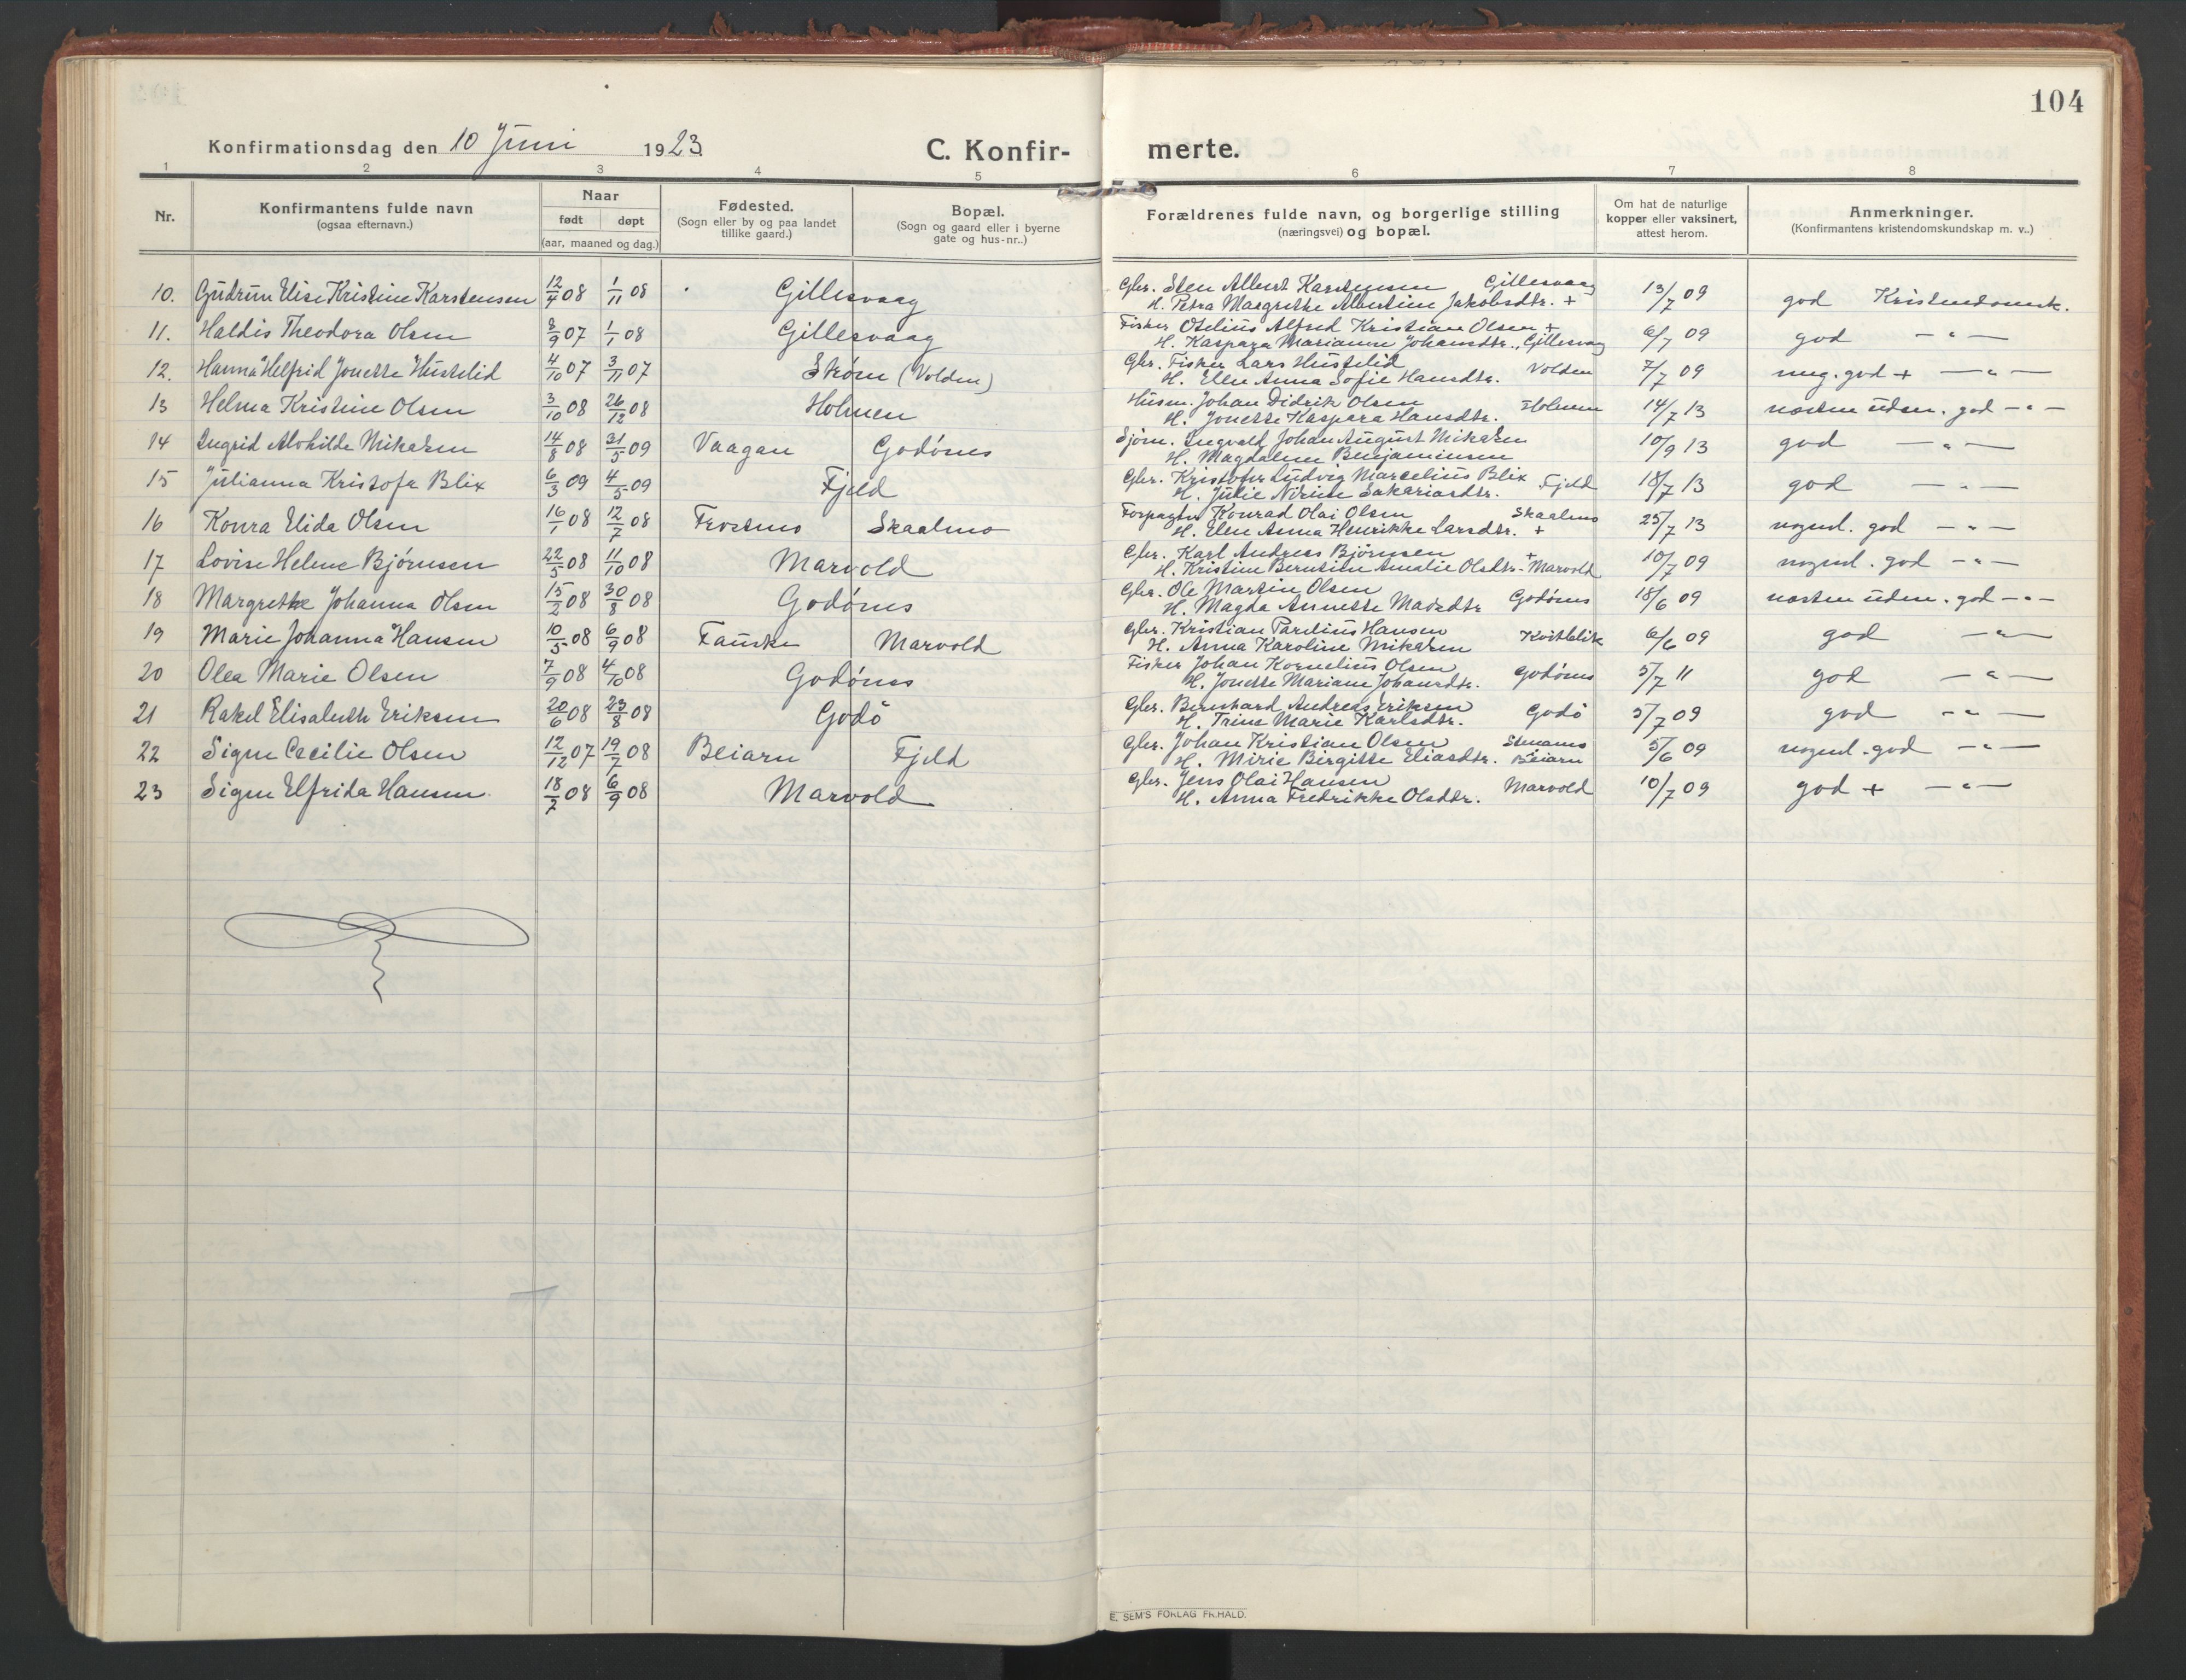 104
Konfirmationsdag den 10 Juni 1923.
C. Konfir- merte.
1 2 3 4 5 6 7 8
Nr.
Konfirmantens fulde navn
(ogsaa efternavn.)
Naar
født døpt
(aar, maaned og dag.)
Fødested.
(Sogn eller by og paa landet
tillike gaard.)
Bopæl.
(Sogn og gaard eller i byerne
gate og hus-nr..)
Forældrenes fulde navn, og borgerlige stilling
(næringsvei) og bopæl.
Om hat de naturlige
kopper eller vaksinert,
attest herom.
Anmerkninger.
(Konfirmantens kristendomskundskap m. v..)
10. Gudrun Elise Kristine Karstensen 12/4 08 1/11 08 Gillesvaag Gbr. Sten Albert Karstensen Gillesvaag 13/7 09 god Kristendomsk.
H. Petra Margrethe Albertine Jakobsdtr. +
11. Haldis Theodora Olsen 8/9 07 1/1 08 Gillesvaag Fisker Otelius Alfred Kristian Olsen + 6/7 09 god — " —
H. Kaspara Marianne Johansdtr., Gillesvaag
12. Hanna Helfrid Jonette Hustelid 4/10 07 3/11 07 Strøm (Volden) Gbr. Fisker Lars Hustelid Volden 7/7 09 meg. god + — " —
H. Elen Anna Sofie Hansdtr.
13 Helma Kristine Olsen 3/10 08 26/12 08 Holmen Husm. Johan Didrik Olsen Holmen 14/7 13 næsten uden. god — " —
H. Jonette Kaspara Hansdtr.
14 Ingrid Alvhilde Mikalsen 14/8 08 31/5 09 Vaagan Godønes Sjøm. Ingvald Johan August Mikalsen 10/9 13 god — " —
H. Magdalene Benjaminsen
15 Julianna Kristofa Blix 6/3 09 4/5 09 Fjeld Gbr. Kristofer Ludvig Marcelius Blix Fjeld 18/7 13 god — " —
H. Julie Nirine Sakariasdtr.
16 Konra Elida Olsen 16/1 08 12/7 08 Frostmo Skaalmo Forpagter Konrad Olai Olsen Skaalmo 25/7 13 nogenl. god — " —
H. Elen Anna Henrikke Larsdtr. +
17 Lovise Helene Bjørnsen 22/5 08 11/10 08 Marvold Gbr. Karl Andreas Bjørnsen + 10/7 09 nogenl. god — " —
H. Kristine Berntine Amalie Olsdtr. - Marvold
18 Margrethe Johanna Olsen 15/2 08 30/8 08 Godønes Gbr. Ole Martin Olsen Godønes 18/6 09 næsten uden. god — " —
H. Magda Annette Madsdtr
19 Marie Johanna Hansen 10/5 08 6/9 08 Fauske Marvold Gbr. Kristian Parelius Hansen Kvitblik 6/6 09 god — " —
H. Anna Karoline Mikalsen
20 Olea Marie Olsen 7/9 08 4/10 08 Godønes Fisker Johan Kornelius Olsen Godønes 5/7 11 god — " —
H. Jonette Mariane Johansdtr.
21 Rakel Elisabeth Eriksen 20/6 08 23/8 08 Godö Gbr. Bernhard Andreas Eriksen Godö 5/7 09 god — " —
H. Trine Marie Karlsdtr.
22 Signe Cecilie Olsen 12/12 07 19/7 08 Beiarn Fjeld Gbr. Johan Kristian Olsen 5/6 09 nogenl. god — " —
H. Mirie Birgitte Eliasdtr. Beiarn
23 Signe Elfrida Hansen. 18/7 08 6/9 08 Marvold Gbr. Jens Olai Hansen Marvold 10/7 09 god + — " —
H. Anna Fredrikke Olsdtr.
E. SEM'S FORLAG FR.HALD.